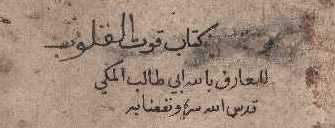 كتاب قوت القلوب
للعارف بالله ابي طالب المكي
قدس الله سره ونفعنا به